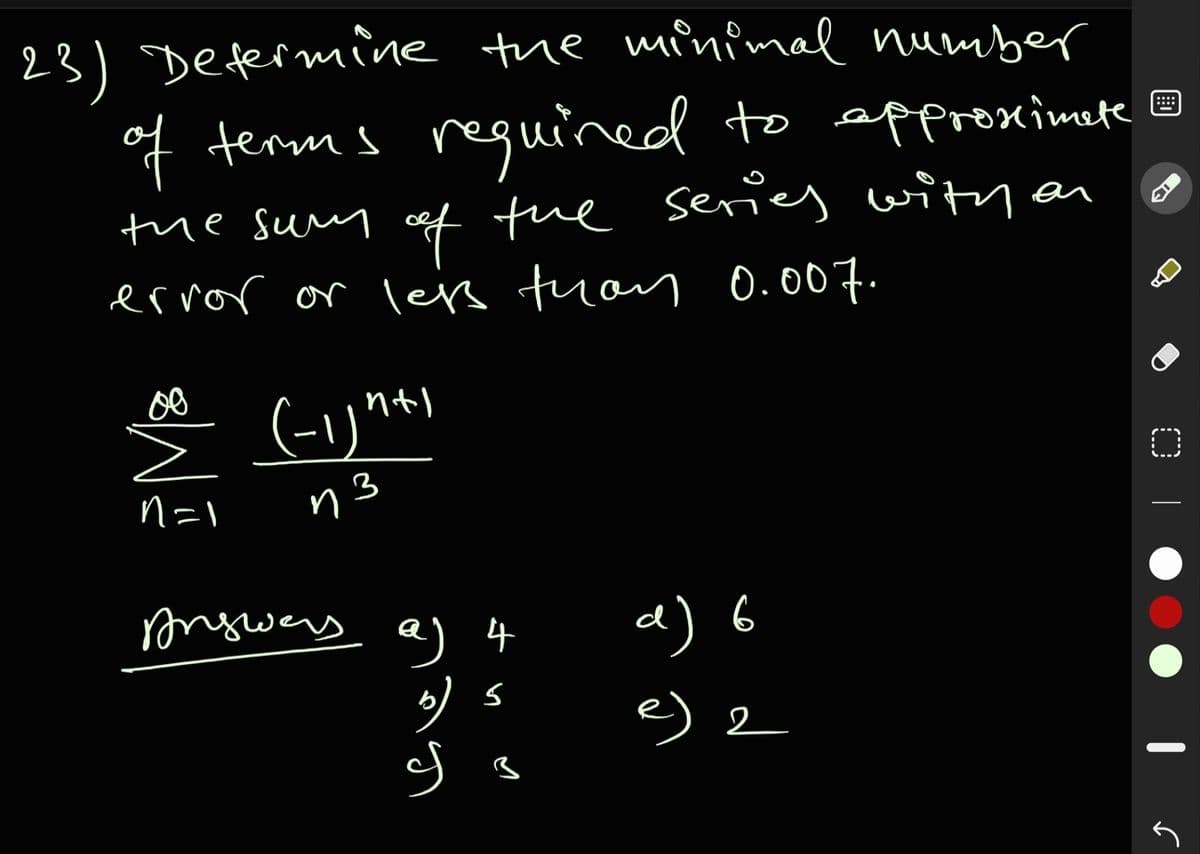 23) Determine the minimal number
of terms required to approximate
the sum of the series with an
error or less than 0.007.
∞
Σ (-1)^{n+1} / n^3
n=1
Answers a) 4 d) 6
b) 5 e) 2
c) 3